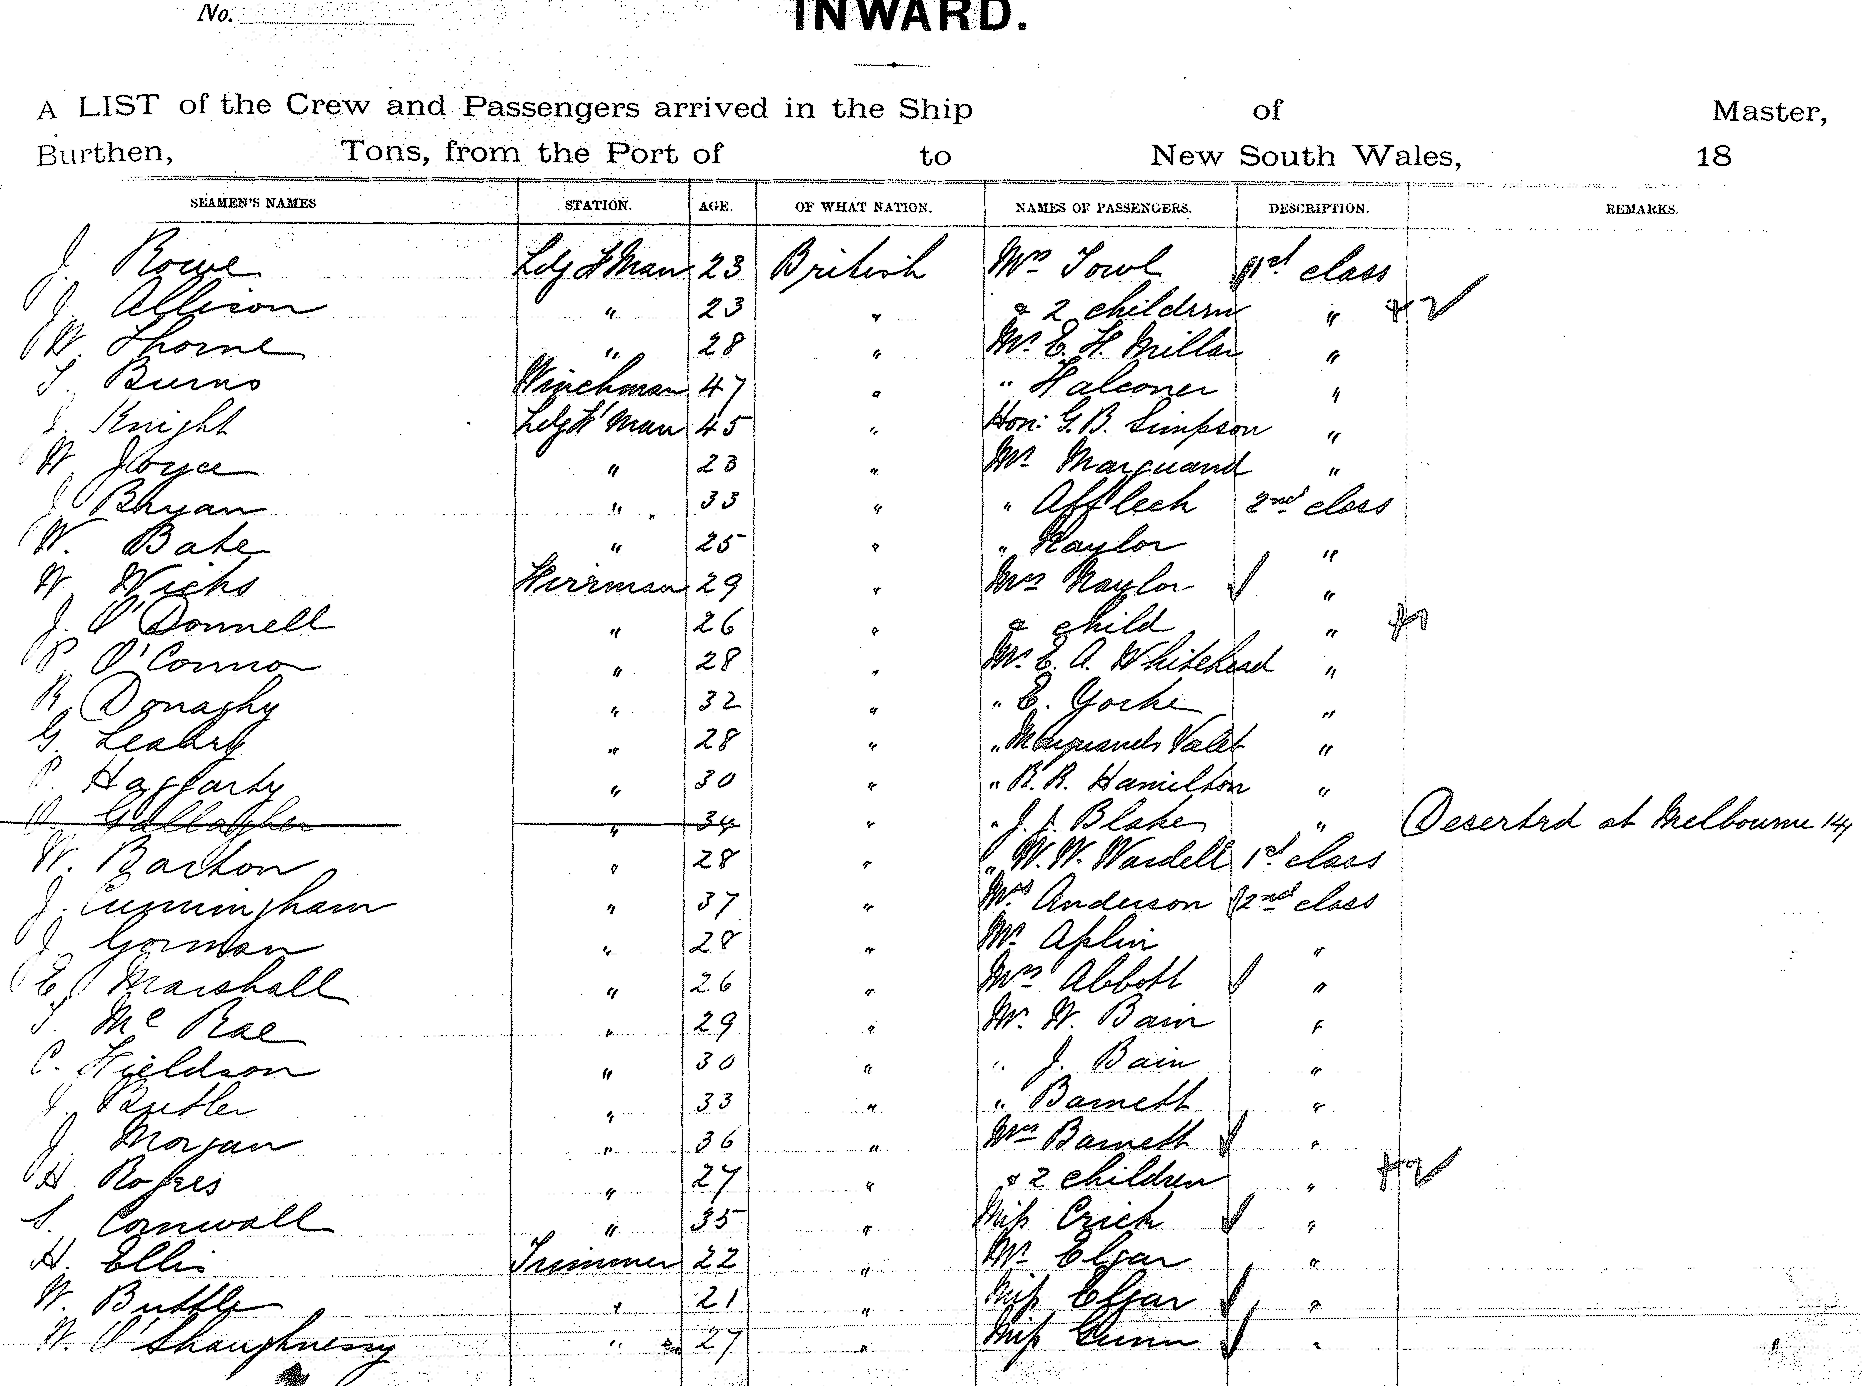 No.
INWARD.
A LIST of the Crew and Passengers arrived in the Ship of Master,
Burthen, Tons, from the Port of to New South Wales, 18
SEAMEN'S NAMES STATION. AGE. OF WHAT NATION. NAMES OF PASSENGERS. DESCRIPTION. REMARKS.
J. Rowe Ldg F'Man 23 British Mrs Towl 1st class
J. Allison " 23 " & 2 children "
W. Thorne " 28 " Mr. E. H. Millar "
T. Burns Winchman 47 " " Falconer "
J. Knight Ldg F'Man 45 " Hon: G. B. Simpson "
W. Joyce " 23 " Mr. Marquand "
J. Bryan " 33 " " Affleck 2nd class
W. Bate " 25 " " Naylor "
W. Wicks Fireman 29 " Mrs Naylor "
J. O'Donnell " 26 " & child "
P. O'Connor " 28 " Mr. E. A. Whitehead "
R. Donaghy " 32 " " E. Yorke "
G. Leahry " 28 " " Marquands Valet "
P. Haggarty " 30 " " R. R. Hamilton "
Gallagher " 34 " " J. J. Blake " Deserted at Melbourne 14/
W. Barton " 28 " " W. W. Wardell 1st class
J. Cunningham " 37 " Mrs Anderson 2nd class
J. Gorman " 28 " Mr. Aplin "
E. Marshall " 26 " Mrs Abbott "
T. Mc Rae " 29 " Mr. W. Bain "
C. Fieldson " 30 " " J. Bain "
J. Butler " 33 " " Barnett "
J. Morgan " 36 " Mrs Barnett "
H. Rogers " 27 " & 2 children "
S. Cornwall " 35 " Miss Crick "
H. Ellis Trimmer 22 " Mr. Elgar "
W. Buttle " 21 " Miss Elgar "
W. O'Shaughnessy " 27 " Miss Gunn "